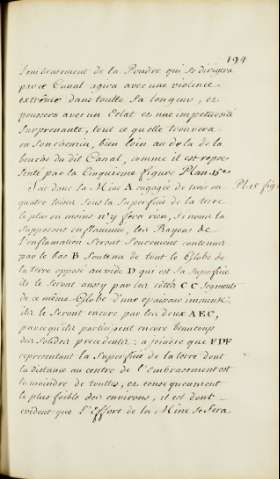 199
soudainement de la Poudre qui se dirigera
par ce Canal agira avec une violence
extreme dans toutte sa longeur, et
poussera avec un Eclat et une impetuosité
surprenante, tout ce quelle trouvera
en son chemin, bien loin au dela de la
bouche du dit Canal, comme il est repre-
senté par la Cinquieme figure Plan
Soit donc la Mine A engagée de trois ou
Pl. et fig.
quatre toises sous la Superficie de la terre
le plus ou moins n'y fera rien, si nous la
supposons enflammée, les Rayons de
l'enflamation seront seurement contenus
par le bas B soutenu de tout le Globe de
la terre opposé au vide D qui est sa superficie
ils le seront aussy par les cotés C C segments
de ce même Globe d'une epaisseur immense
ils le seront encore par les deux AEC,
parcequ'ils participent encore beaucoup
des solides precedents: a joindre que FDF
representant la Superficie de la terre dont
la distance au centre de l'embrasement est
la moindre de touttes, et consequament
le plus foible des environs, il est donc
evident que l'Effort de la Mine se fera